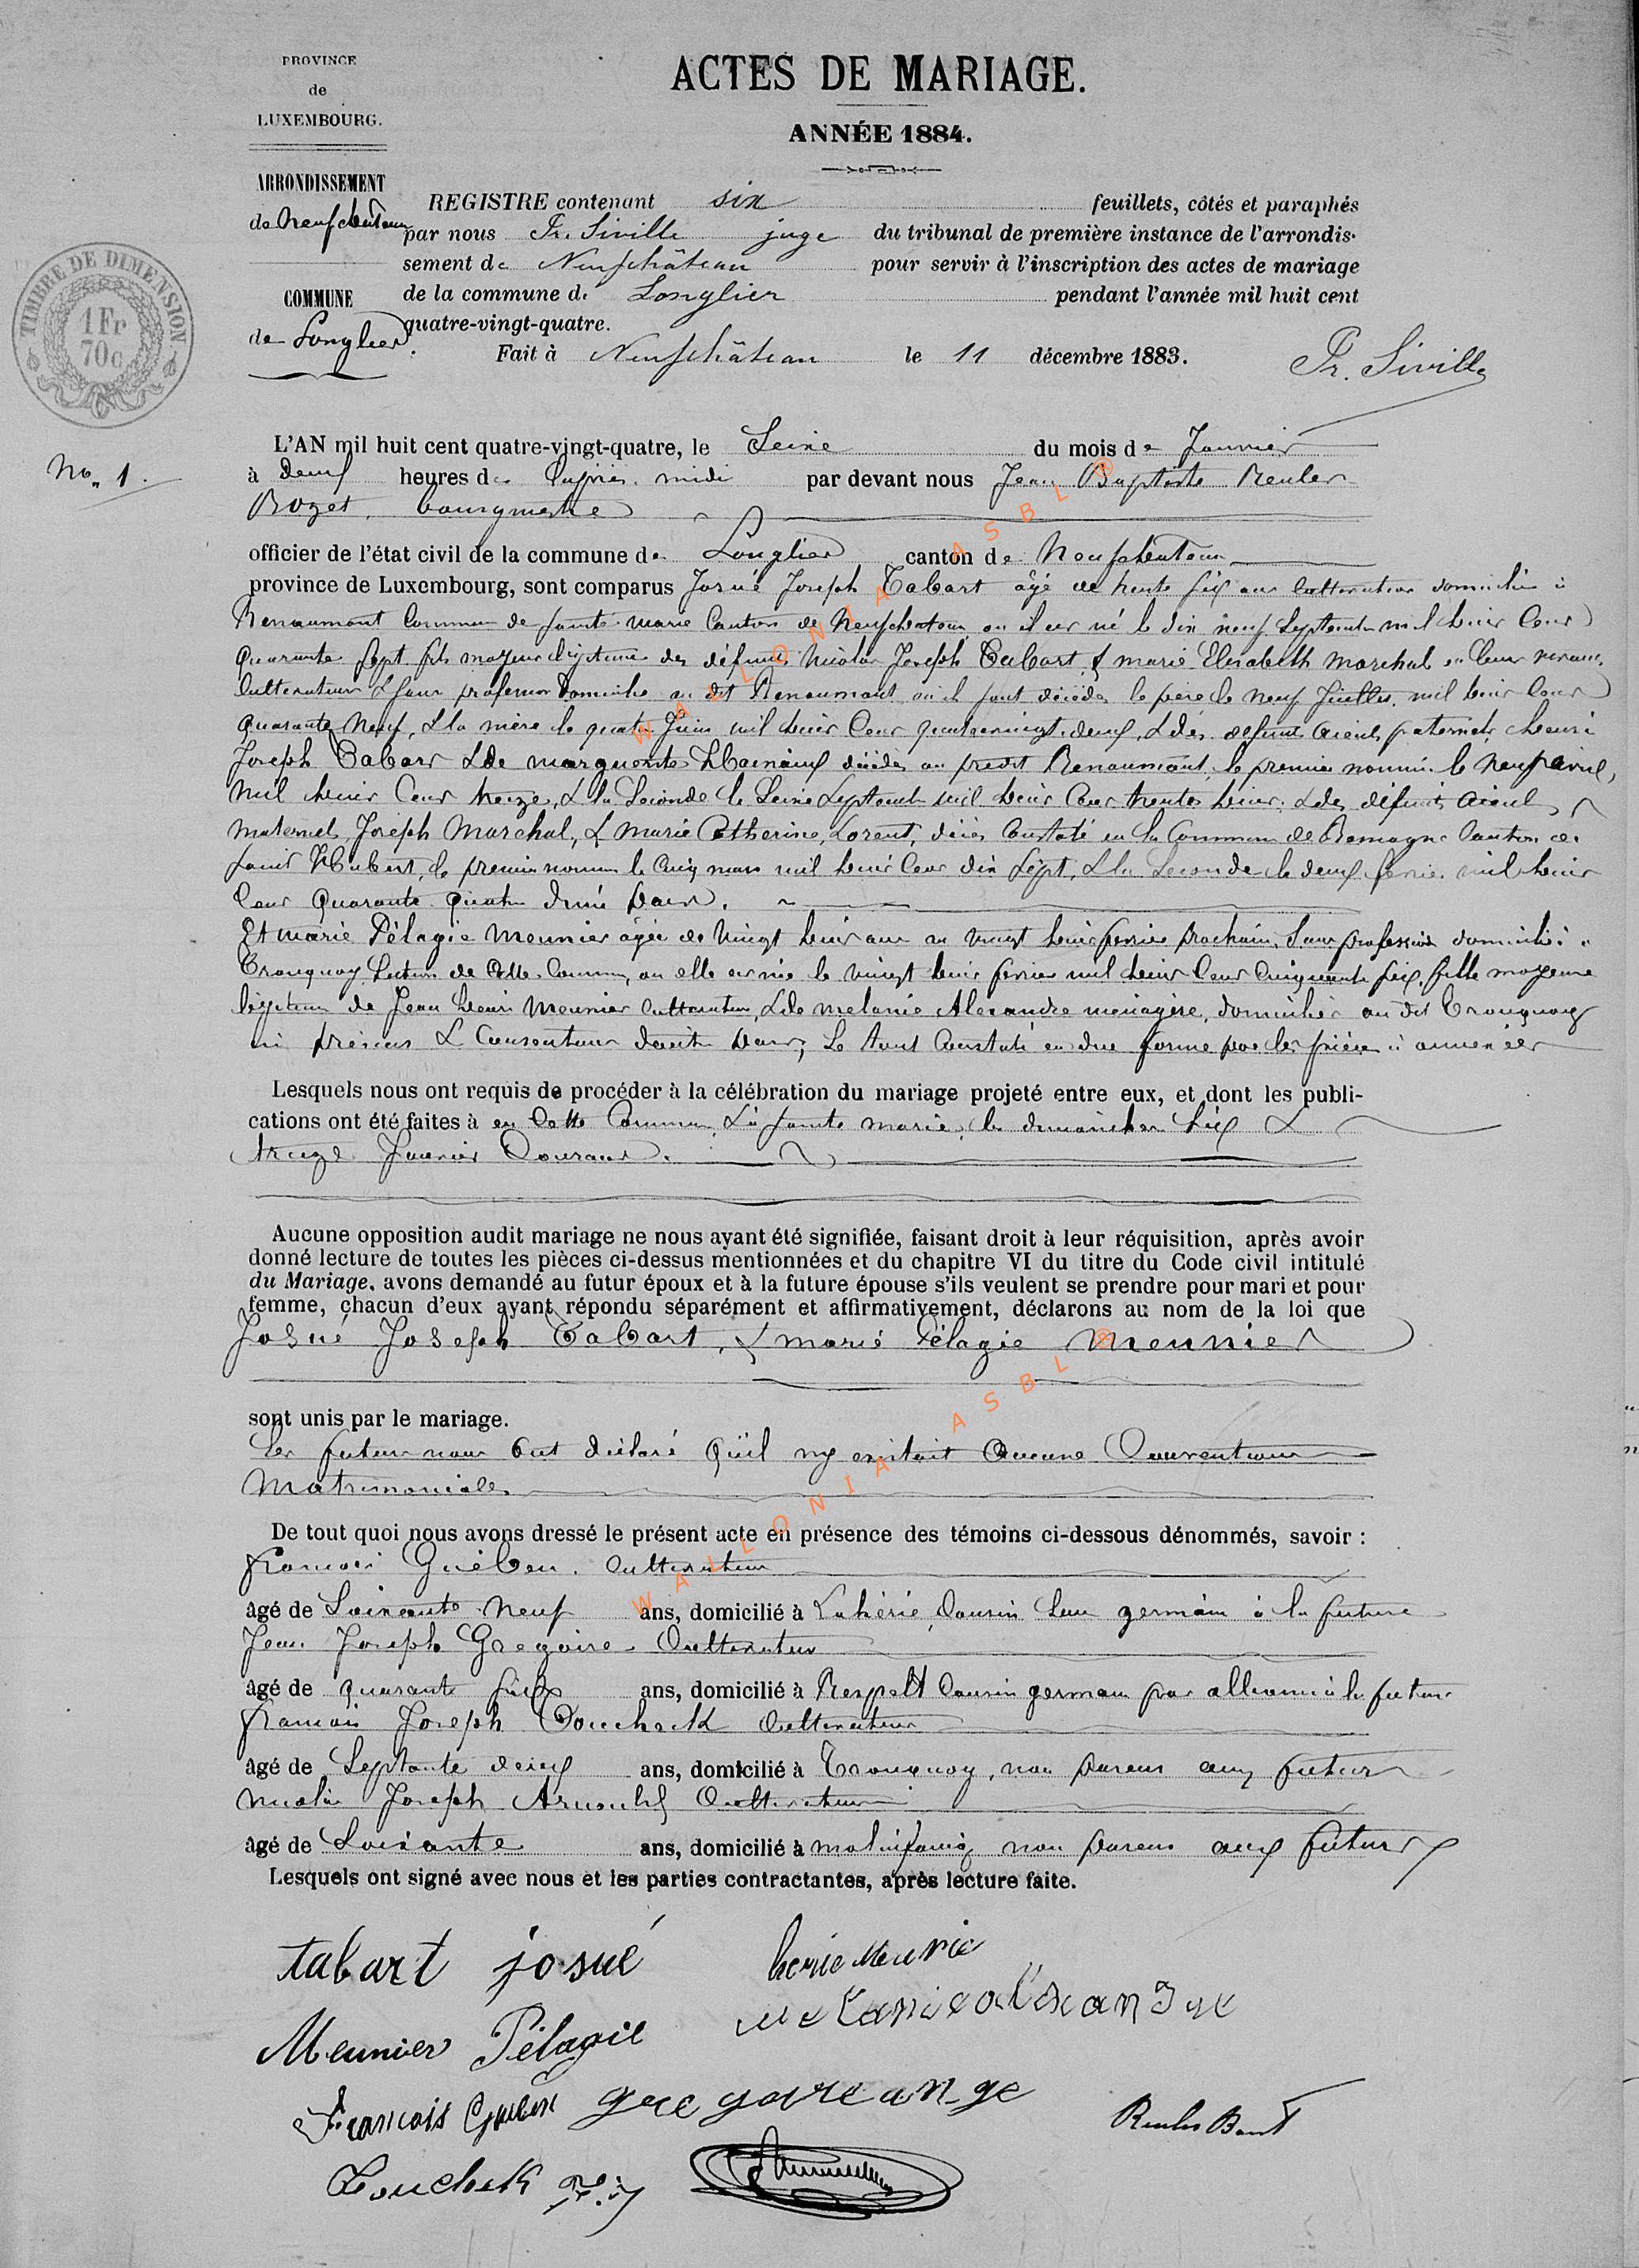 PROVINCE
de
LUXEMBOURG.
ARRONDISSEMENT
de Neufchateau
COMMUNE
de Longlier
TIMBRE DE DIMENSION
1 Fr
70c
ACTES DE MARIAGE.
ANNÉE 1884.
REGISTRE contenant six feuillets, côtés et paraphés
par nous Fr. Siville juge du tribunal de première instance de l'arrondis-
sement de Neufchâteau pour servir à l'inscription des actes de mariage
de la commune de Longlier pendant l'année mil huit cent
quatre-vingt-quatre.
Fait à Neufchâteau le 11 décembre 1883.
Fr. Siville
No. 1.
L'AN mil huit cent quatre-vingt-quatre, le Seize du mois de Janvier
à deux heures de l'après midi par devant nous Jean Baptiste Reuler
Rozet, bourgmestre
officier de l'état civil de la commune de Longlier canton de Neufchateau
province de Luxembourg, sont comparus Josué Joseph Tabart âgé de trente six ans Cultivateur domicilié à
Renaumont Commune de Sainte-marie Canton de Neufchateau où il est né le dix neuf Septembre mil huit Cent
Quarante Sept fils majeur légitime des défunts Nicolas Joseph Tabart & marie Elisabeth Marchal en leur vivant
Cultivateur & sans profession domiciliés au dit Renaumont où ils sont décédés le père le neuf Juillet mil huit Cent
quarante Neuf, & la mère le quatre Juin mil huit Cent quatrevingt-deux, & des défunts aieuls paternels henri
Joseph Tabart & de marguerite décédés au predit Renaumont, le premier nommé le Neuf avril
mil huit Cent treize, & la Seconde le Seize Septembre mil huit Cent trente huit, & des défunts aieuls
maternels Joseph Marchal, & Marie Catherine Lorent, décès Constaté en la Commune de Remagne Canton de
Saint Hubert, le premier nommé le Cinq mars mil huit Cent dix Sept, & la Seconde le deux fevrier mil huit
Cent Quarante Quatre d'une part.
Et marie Pélagie Meunier âgée de Vingt huit ans au vingt huit fevrier prochain, Sans profession domiciliée à
Tronquoy Section de Cette Commune, où elle est née le vingt huit fevrier mil huit Cent Cinquante Six, fille majeure
légitime de Jean henri Meunier Cultivateur, & de melanie Alexandre ménagère, domiciliés au dit Tronquoy
ici présens & Consentans d'autre part; Le tout Constaté en due forme par les pièces à annexer
Lesquels nous ont requis de procéder à la célébration du mariage projeté entre eux, et dont les publi-
cations ont été faites à en Cette Commune, & à Sainte marie, les dimanches Six &
treize Janvier Courant.
Aucune opposition audit mariage ne nous ayant été signifiée, faisant droit à leur réquisition, après avoir
donné lecture de toutes les pièces ci-dessus mentionnées et du chapitre VI du titre du Code civil intitulé
du Mariage, avons demandé au futur époux et à la future épouse s'ils veulent se prendre pour mari et pour
femme, chacun d'eux ayant répondu séparément et affirmativement, déclarons au nom de la loi que
Josué Joseph Tabart, & marie Pélagie Meunier
sont unis par le mariage.
Les futurs nous ont déclaré Qu'il n'y existait Aucune Convention
Matrimoniale.
De tout quoi nous avons dressé le présent acte en présence des témoins ci-dessous dénommés, savoir :
francois Guében. Cultivateur
âgé de Soixante neuf ans, domicilié à Lahérie, Cousin germain à la future
Jean Joseph Gregoire Cultivateur
âgé de quarante Six ans, domicilié à Respelt Cousin germain par alliance à la future
francois Joseph Louchek Cultivateur
âgé de Septante deux ans, domicilié à Tronquoy, non parent aux futurs
nicolas Joseph Arnould Cultivateur
âgé de Soixante ans, domicilié à molinfaing non parent aux futurs
Lesquels ont signé avec nous et les parties contractantes, après lecture faite.
tabart josué
henrie Meunie
Meunier Pélagie
melanie alexandre
Francois Guében
Louchek
WALLONIA ASBL ®
WALLONIA ASBL ®